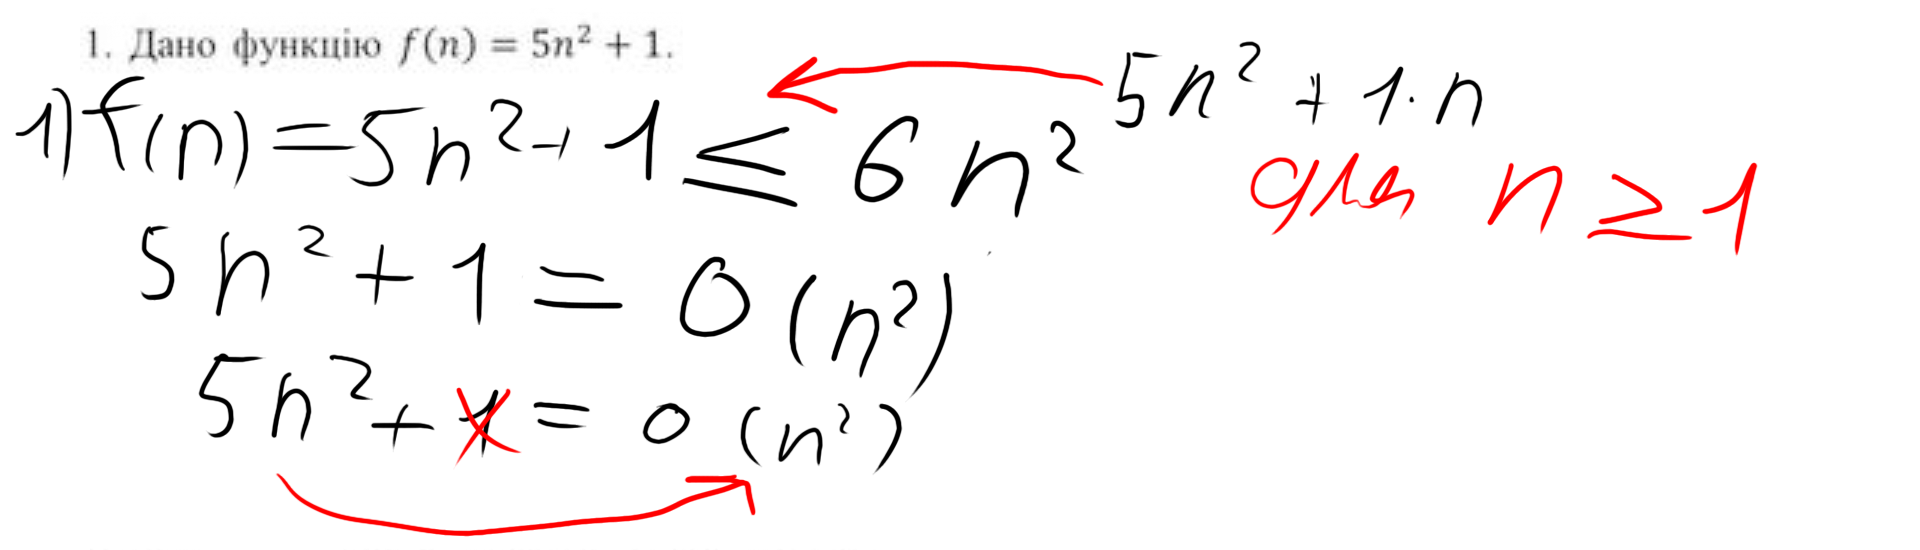 1. Дано функцію f(n) = 5n² + 1.
5n² + 1·n
1) f(n) = 5n² + 1 ≤ 6n²
для n ≥ 1
5n² + 1 = O(n²)
5n² + 1 = o(n²)